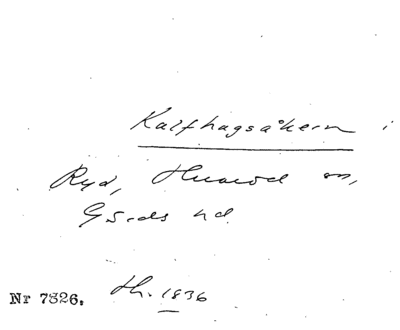 Kalfhagsåkern i
Ryd, Hunaröd sn,
Gärds hd.
Nr 7826. Hh. 1836